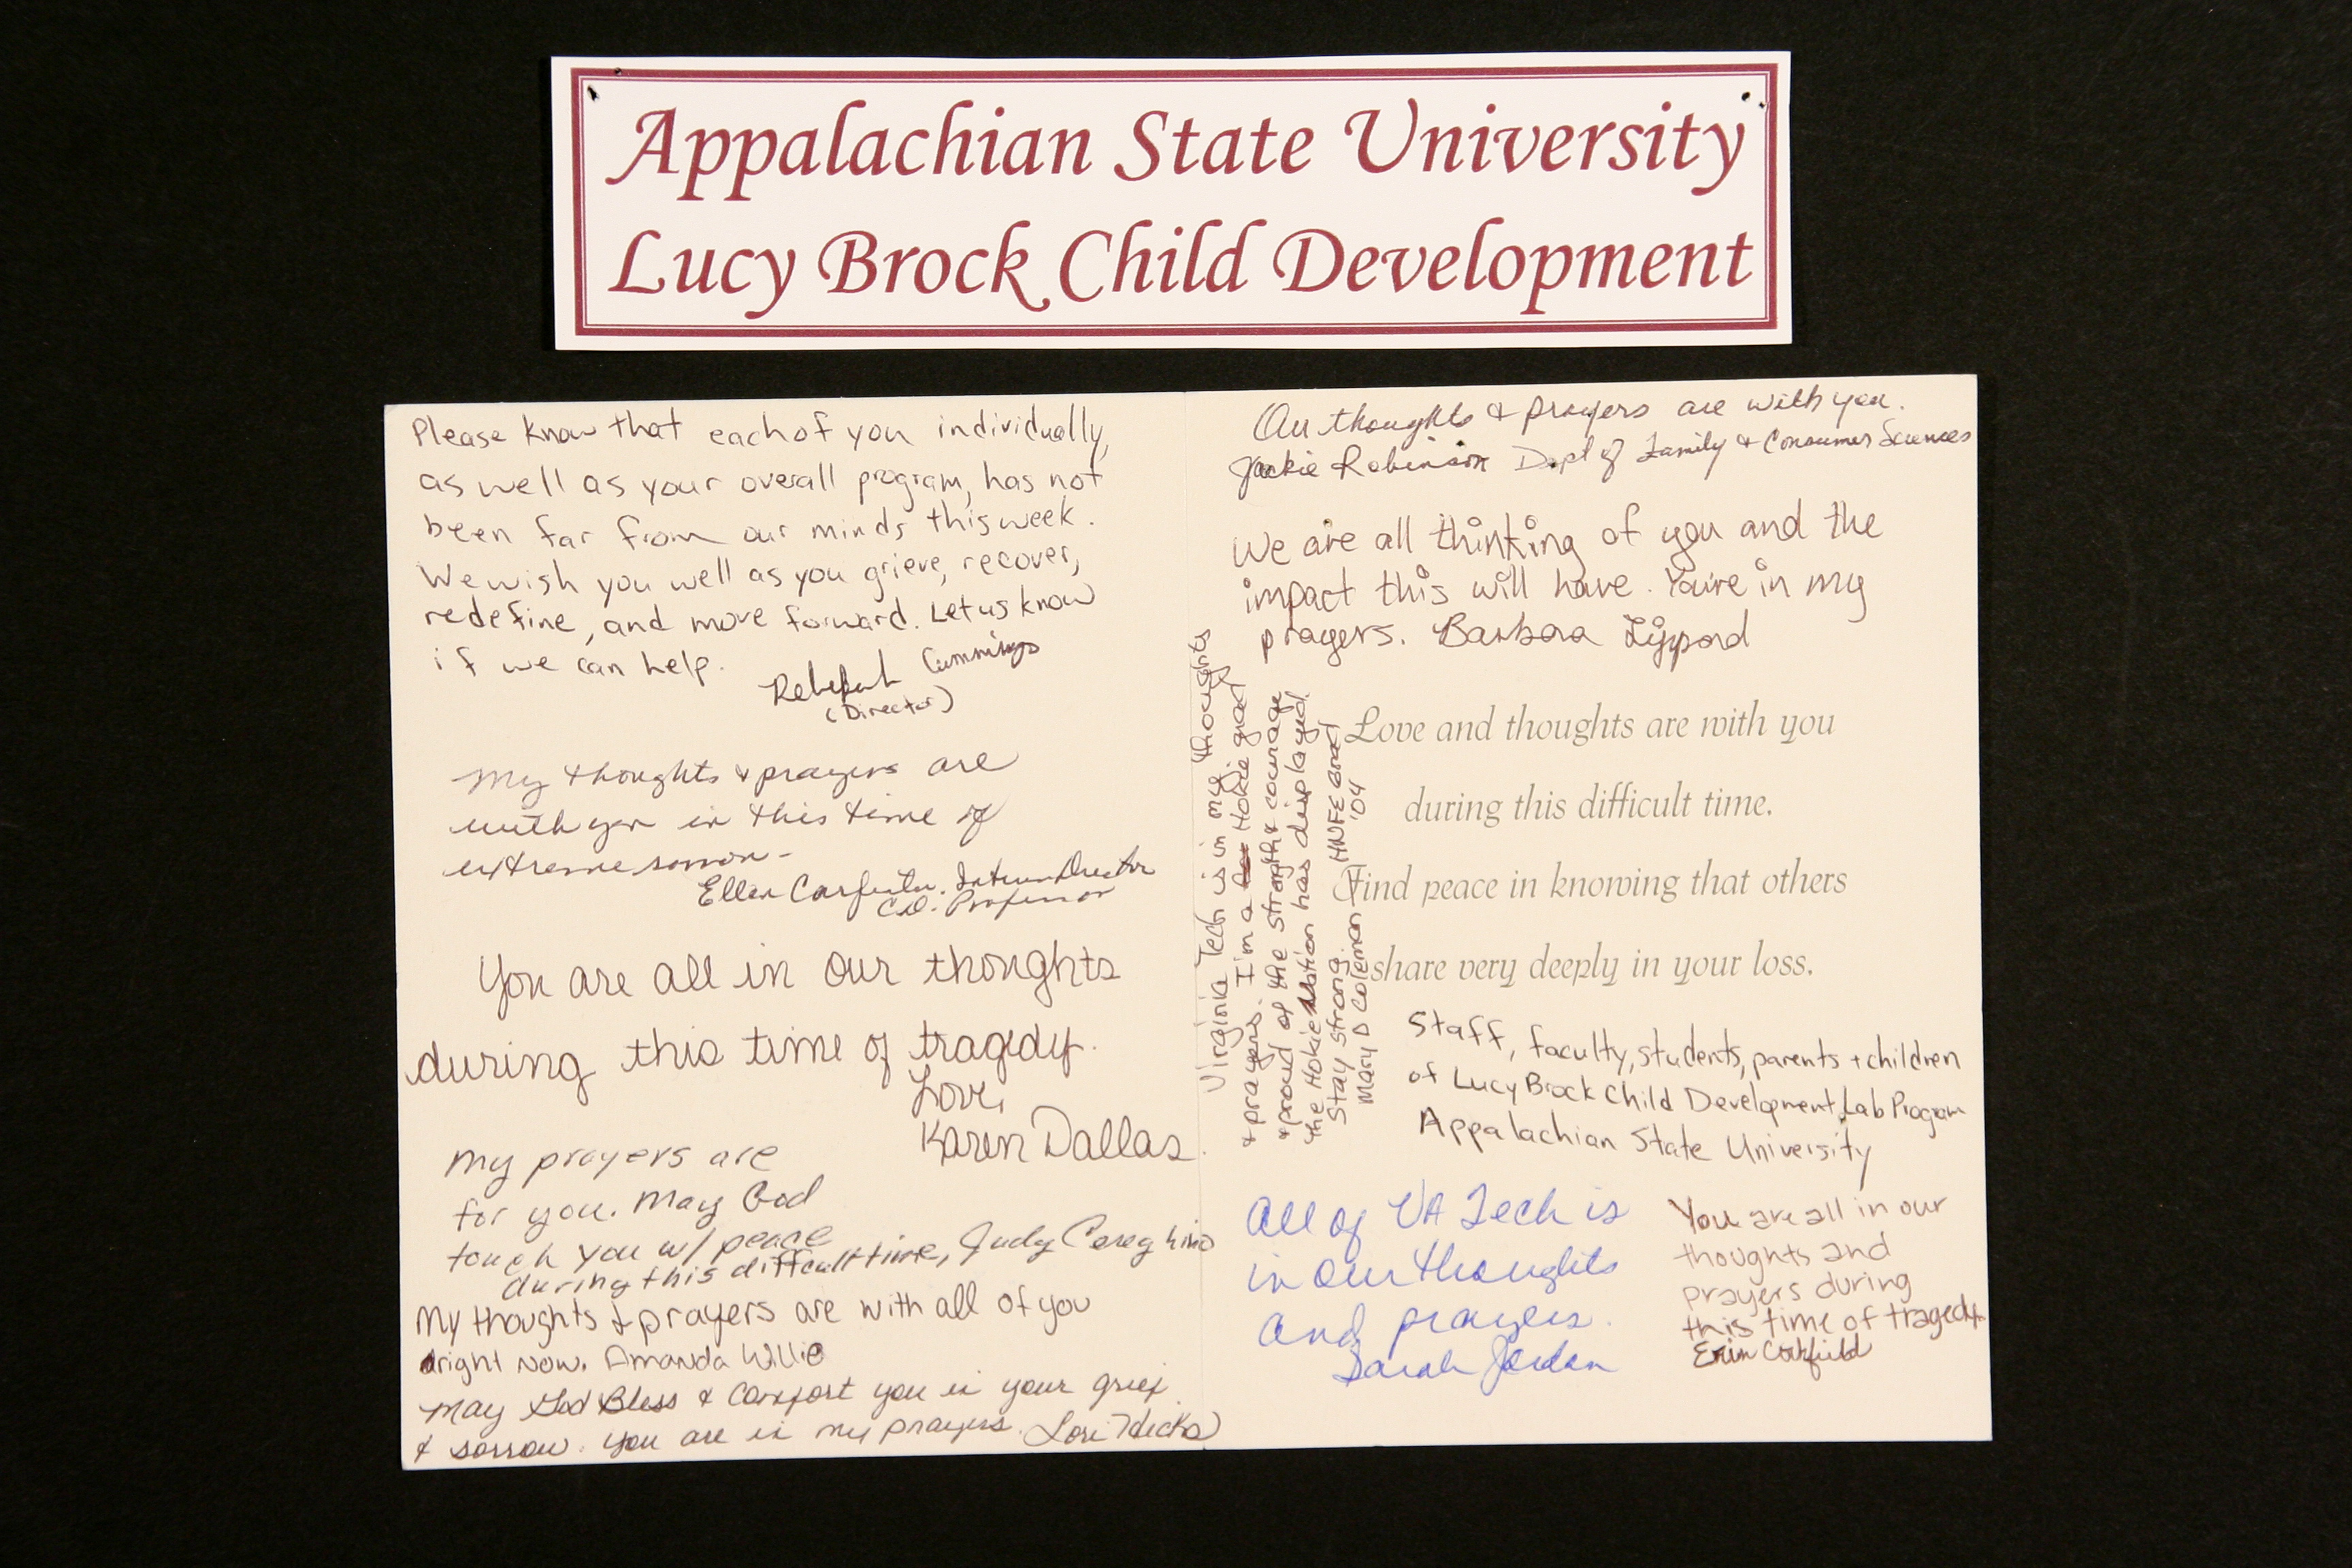 Appalachian State University
Lucy Brock Child Development
Please know that each of you individually,
as well as your overall program, has not
been far from our minds this week.
We wish you well as you grieve, recover,
redefine, and move forward. Let us know
if we can help.
Rebekah Cummings
(Director)
My thoughts & prayers are
with you in this time of
extreme sorrow-
Ellen Interim Director
C.D. Professor
You are all in our thoughts
during this time of tragedy.
Love,
Karen Dallas
My prayers are
for you. May God
touch you w/ peace
during this difficult time, Judy
My thoughts & prayers are with all of you
right now. Amanda Willie
May God Bless & comfort you in your grief
& sorrow. You are in my prayers. Lori Hicks
Our thoughts & prayers are with you.
Jackie Robinson Dept of Family & Consumer Sciences
We are all thinking of you and the
impact this will have. You're in my
prayers. Barbara Lippard
Virginia Tech is in my thoughts
& prayers. I'm a Hokie grad
& proud of the strength & courage
the Hokie Nation has displayed.
Stay strong. HNFE grad
Mary D Coleman '04
Love and thoughts are with you
during this difficult time.
Find peace in knowing that others
share very deeply in your loss.
Staff, faculty, students, parents + children
of Lucy Brock Child Development Lab Program
Appalachian State University
All of VA Tech is
in our thoughts
and prayers.
Sarah Jordan
You are all in our
thoughts and
prayers during
this time of tragedy.
Erin